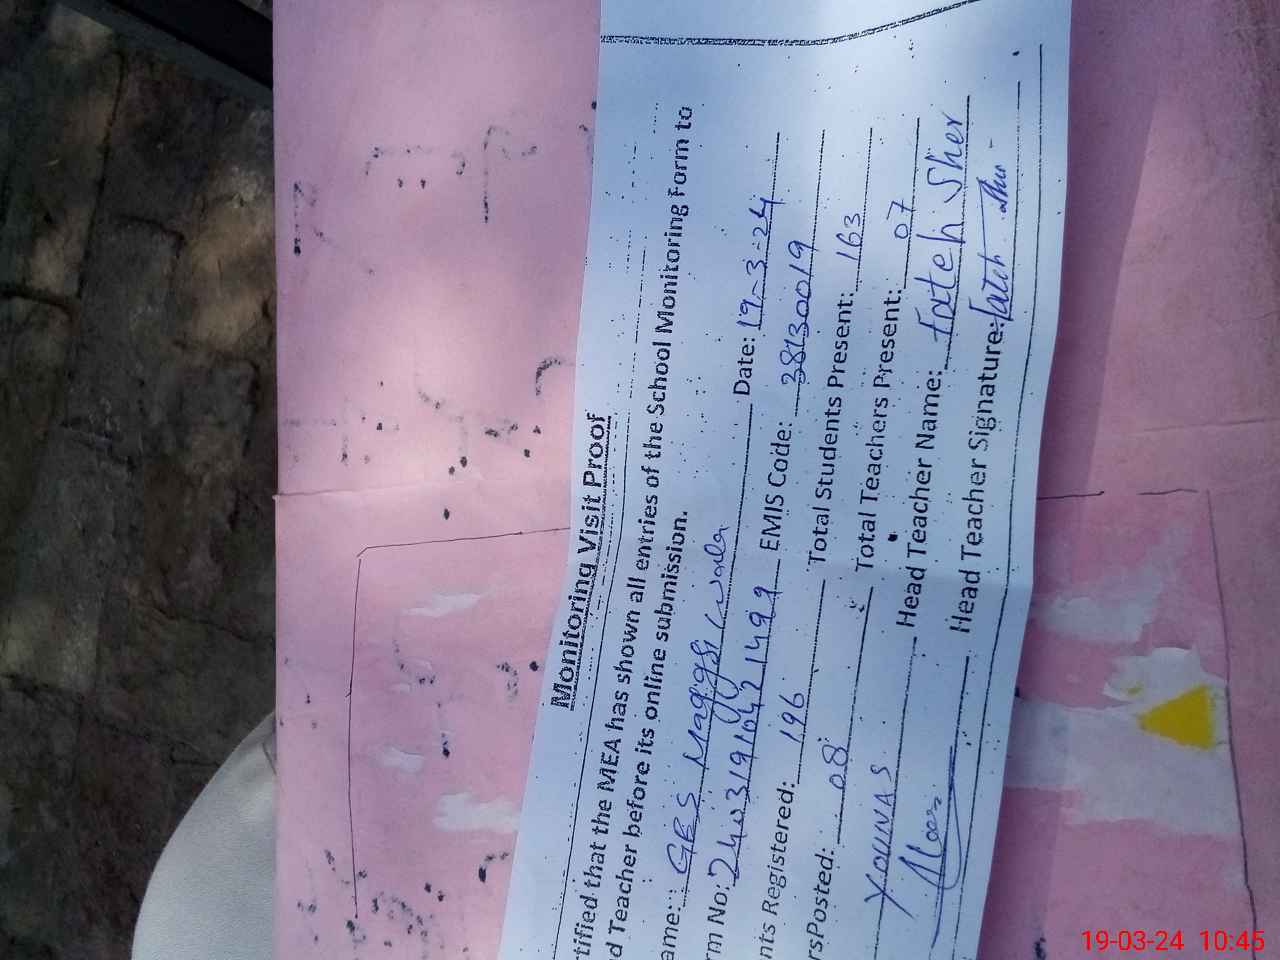 Monitoring Visit Proof
rtified that the MEA has shown all entries of the School Monitoring Form to
d Teacher before its online submission.
ame: GES wala Date: 19-3-24
rm No: EMIS Code: 38130019
nts Registered: 196 Total Students Present: 163
rsPosted: 08 Total Teachers Present: 07
YOUNAS Head Teacher Name: Fateh Sher
Head Teacher Signature: Fateh Sher
19-03-24 10:45